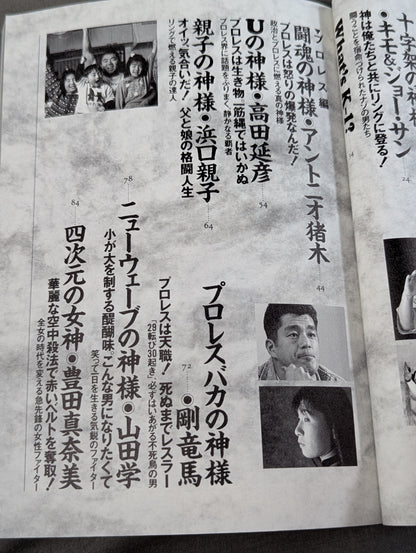 十字架の神様
・キモ&ジョー・サン
神は俺たちと共にリングに登る!
闘うことを宿命づけられたナゾの男たち
24
What's K-1?
プロレス編
闘魂の神様・アントニオ猪木
プロレスは怒りの爆発なんだ!
政治とプロレスに燃える真の神様
44
Uの神様・高田延彦
プロレスは生き物一筋縄ではいかぬ
プロレス界に話題をふりまく、静かなる覇者
54
親子の神様・浜口親子
オイッ、気合いだ! 父と娘の格闘人生
リングで燃える親子の達人
64
プロレスバカの神様
・剛竜馬
72
プロレスは天職! 死ぬまでレスラー
「29転び30起き」必ずはいあがる不死鳥の男
ニューウェーブの神様・山田学
78
小が大を制する醍醐味、こんな男になりたくて
笑って一日を生きる気鋭のファイター
四次元の女神・豊田真奈美
84
華麗な空中殺法で赤いベルトを奪取!
全女の時代を変える急先鋒の女性ファイター